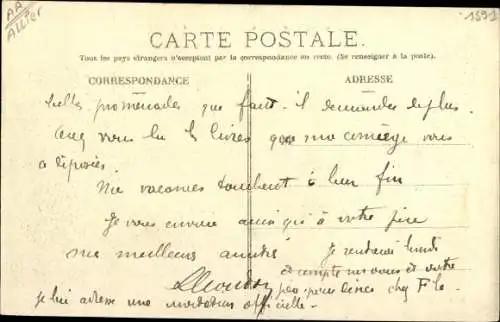 AA
ALLIER
1591
CARTE POSTALE.
Tous les pays étrangers n'acceptent pas la correspondance au recto. (Se renseigner à la poste).
CORRESPONDANCE
ADRESSE
belles promenades que faut-il demander de plus.
Avez vous lu les livres que ma concierge vous
a déposés.
Mes vacances touchent à leur fin
Je vous envoie ainsi qu'à votre père
mes meilleurs amitiés
Je rentrerai lundi
et compte sur vous et votre
père pour chez
je lui adresse une invitation officielle.